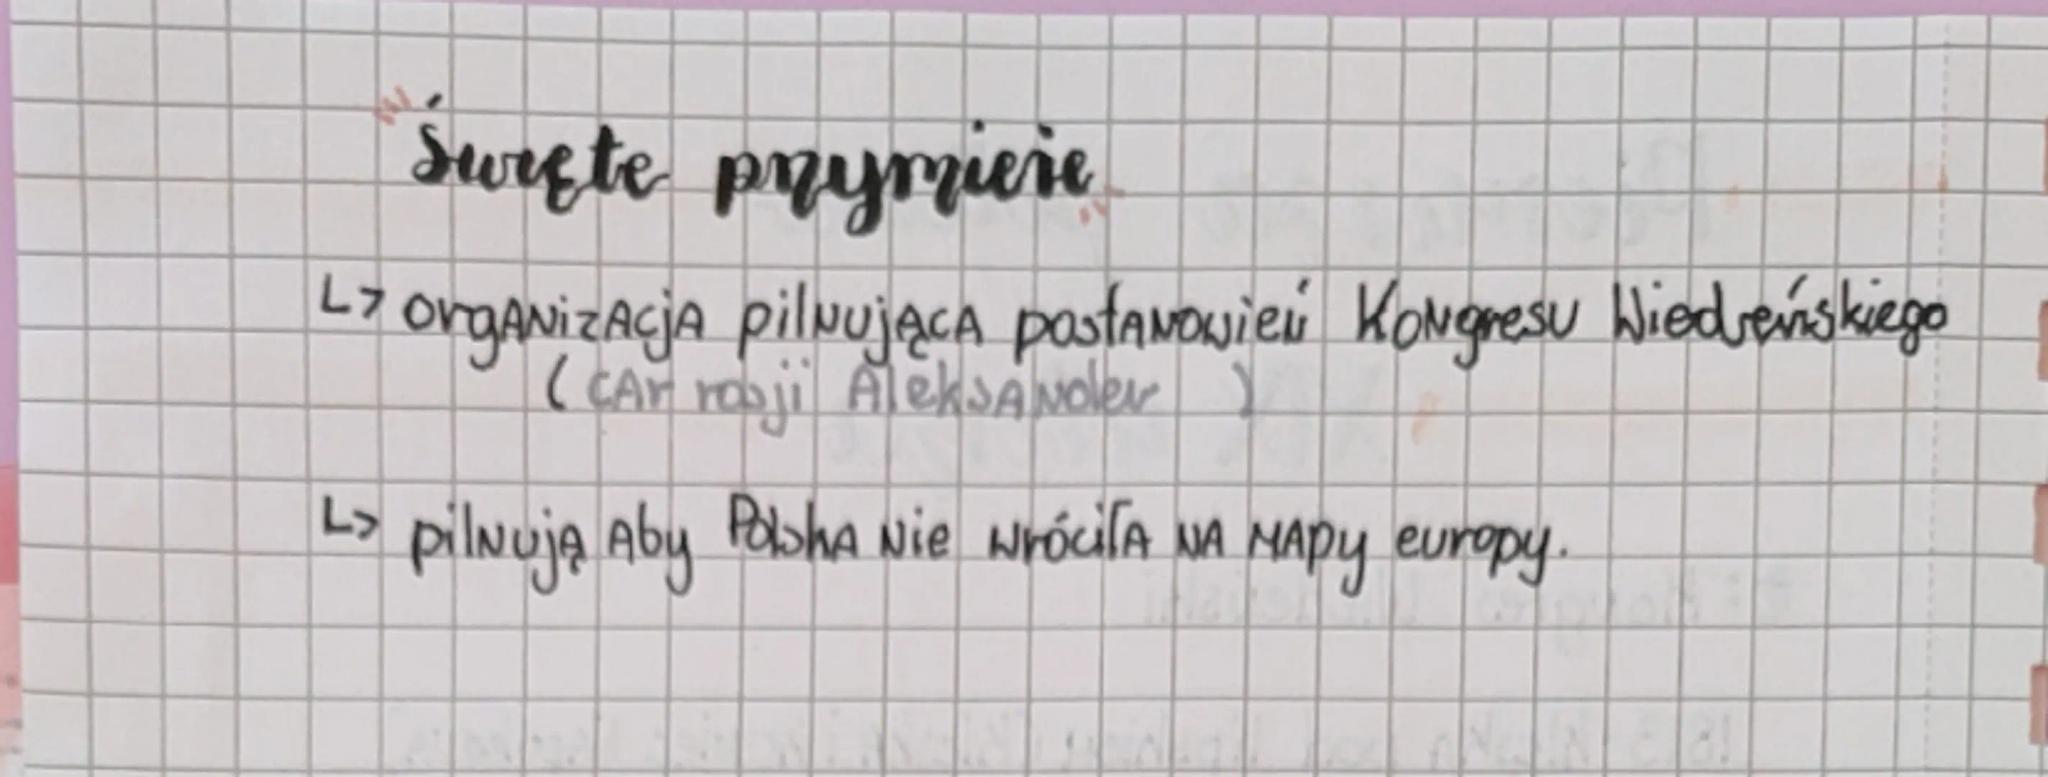 Święte przymieże
↳ organizacja pilnująca postanowień Kongresu Wiedeńskiego
(car rosji Aleksander )
↳ pilnują aby Polska nie wróciła na mapy europy.